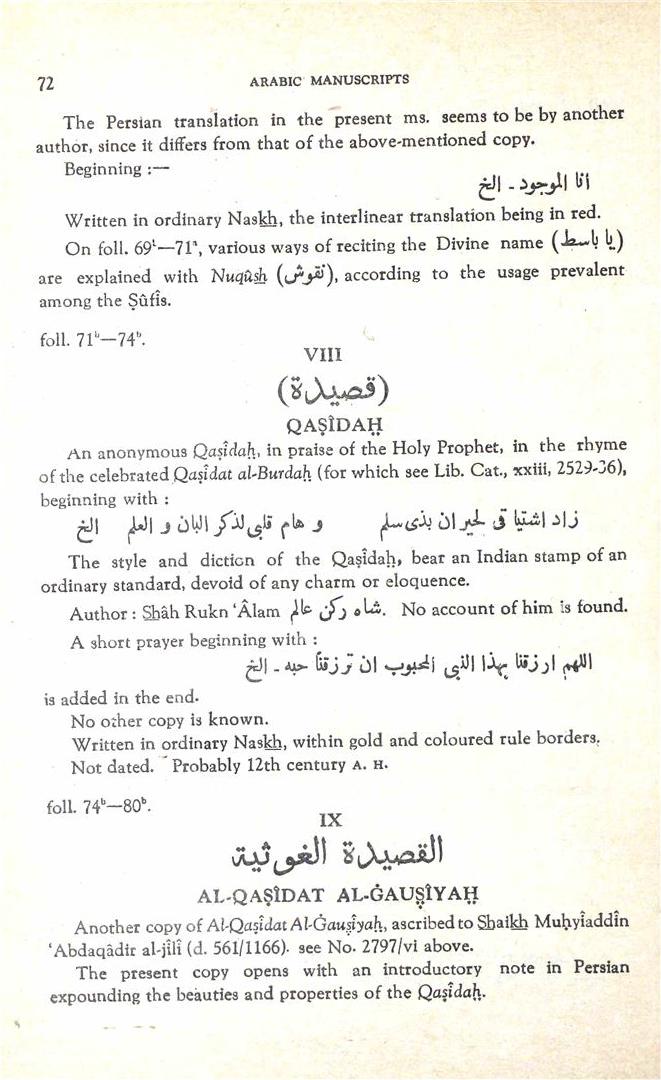 72
ARABIC MANUSCRIPTS
The Persian translation in the present ms. seems to be by another
author, since it differs from that of the above-mentioned copy.
Beginning :—
انا الموجود - الخ
Written in ordinary Nas<u>kh</u>, the interlinear translation being in red.
On foll. 69ᵇ—71ᵃ, various ways of reciting the Divine name (یا باسط)
are explained with Nuqû<u>sh</u> (نقوش), according to the usage prevalent
among the Ṣûfîs.
foll. 71ᵇ—74ᵇ.
VIII
(قصيدة)
QAṢÎDAḤ
An anonymous Qaṣîdaḥ, in praise of the Holy Prophet, in the rhyme
of the celebrated Qaṣîdat al-Burdaḥ (for which see Lib. Cat., xxiii, 2529-36),
beginning with :
زاد اشتیا قی لجیر ان بذی سلم و هام قلبی لذکر البان و العلم الخ
The style and diction of the Qaṣîdaḥ, bear an Indian stamp of an
ordinary standard, devoid of any charm or eloquence.
Author : <u>Sh</u>âh Rukn ‘Âlam شاه رکن عالم. No account of him is found.
A short prayer beginning with :
اللهم ارزقنا بهذا النبی المحبوب ان ترزقنا حبه - الخ
is added in the end.
No other copy is known.
Written in ordinary Nas<u>kh</u>, within gold and coloured rule borders.
Not dated. Probably 12th century A. H.
foll. 74ᵇ—80ᵇ.
IX
القصيدة الغوثية
AL-QAṢÎDAT AL-ĠAUṢÎYAḤ
Another copy of Al-Qaṣîdat Al-Ġauṣîyaḥ, ascribed to <u>Sh</u>ai<u>kh</u> Muḥyîaddîn
‘Abdaqâdir al-jîlî (d. 561/1166). see No. 2797/vi above.
The present copy opens with an introductory note in Persian
expounding the beauties and properties of the Qaṣîdaḥ.